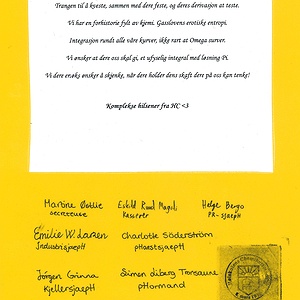 Trangen til å kveste, sammen med dere feste, og deres derivasjon at teste.
Vi har en forhistorie fylt av kjemi. Gasslovens erotiske entropi.
Integrasjon rundt alle våre kurver, ikke rart at Omega surver.
Vi ønsker at dere oss skal gi, et ufyselig integral med løsning Pi.
Vi dere ønsker å skjenke, når dere holder dens skaft dere på oss kan tenke!
Komplekse hilsener fra HC <3
Martine
Eskild Ruud
Helge Bergo
Secreteuse
Kasserer
PR-sjæpH
Emilie W. Larsen
Charlotte Söderström
IndustrisjæpH
pHæstsjæpH
Jörgen Ginna
Simen
KjellersjæpH
pHormand